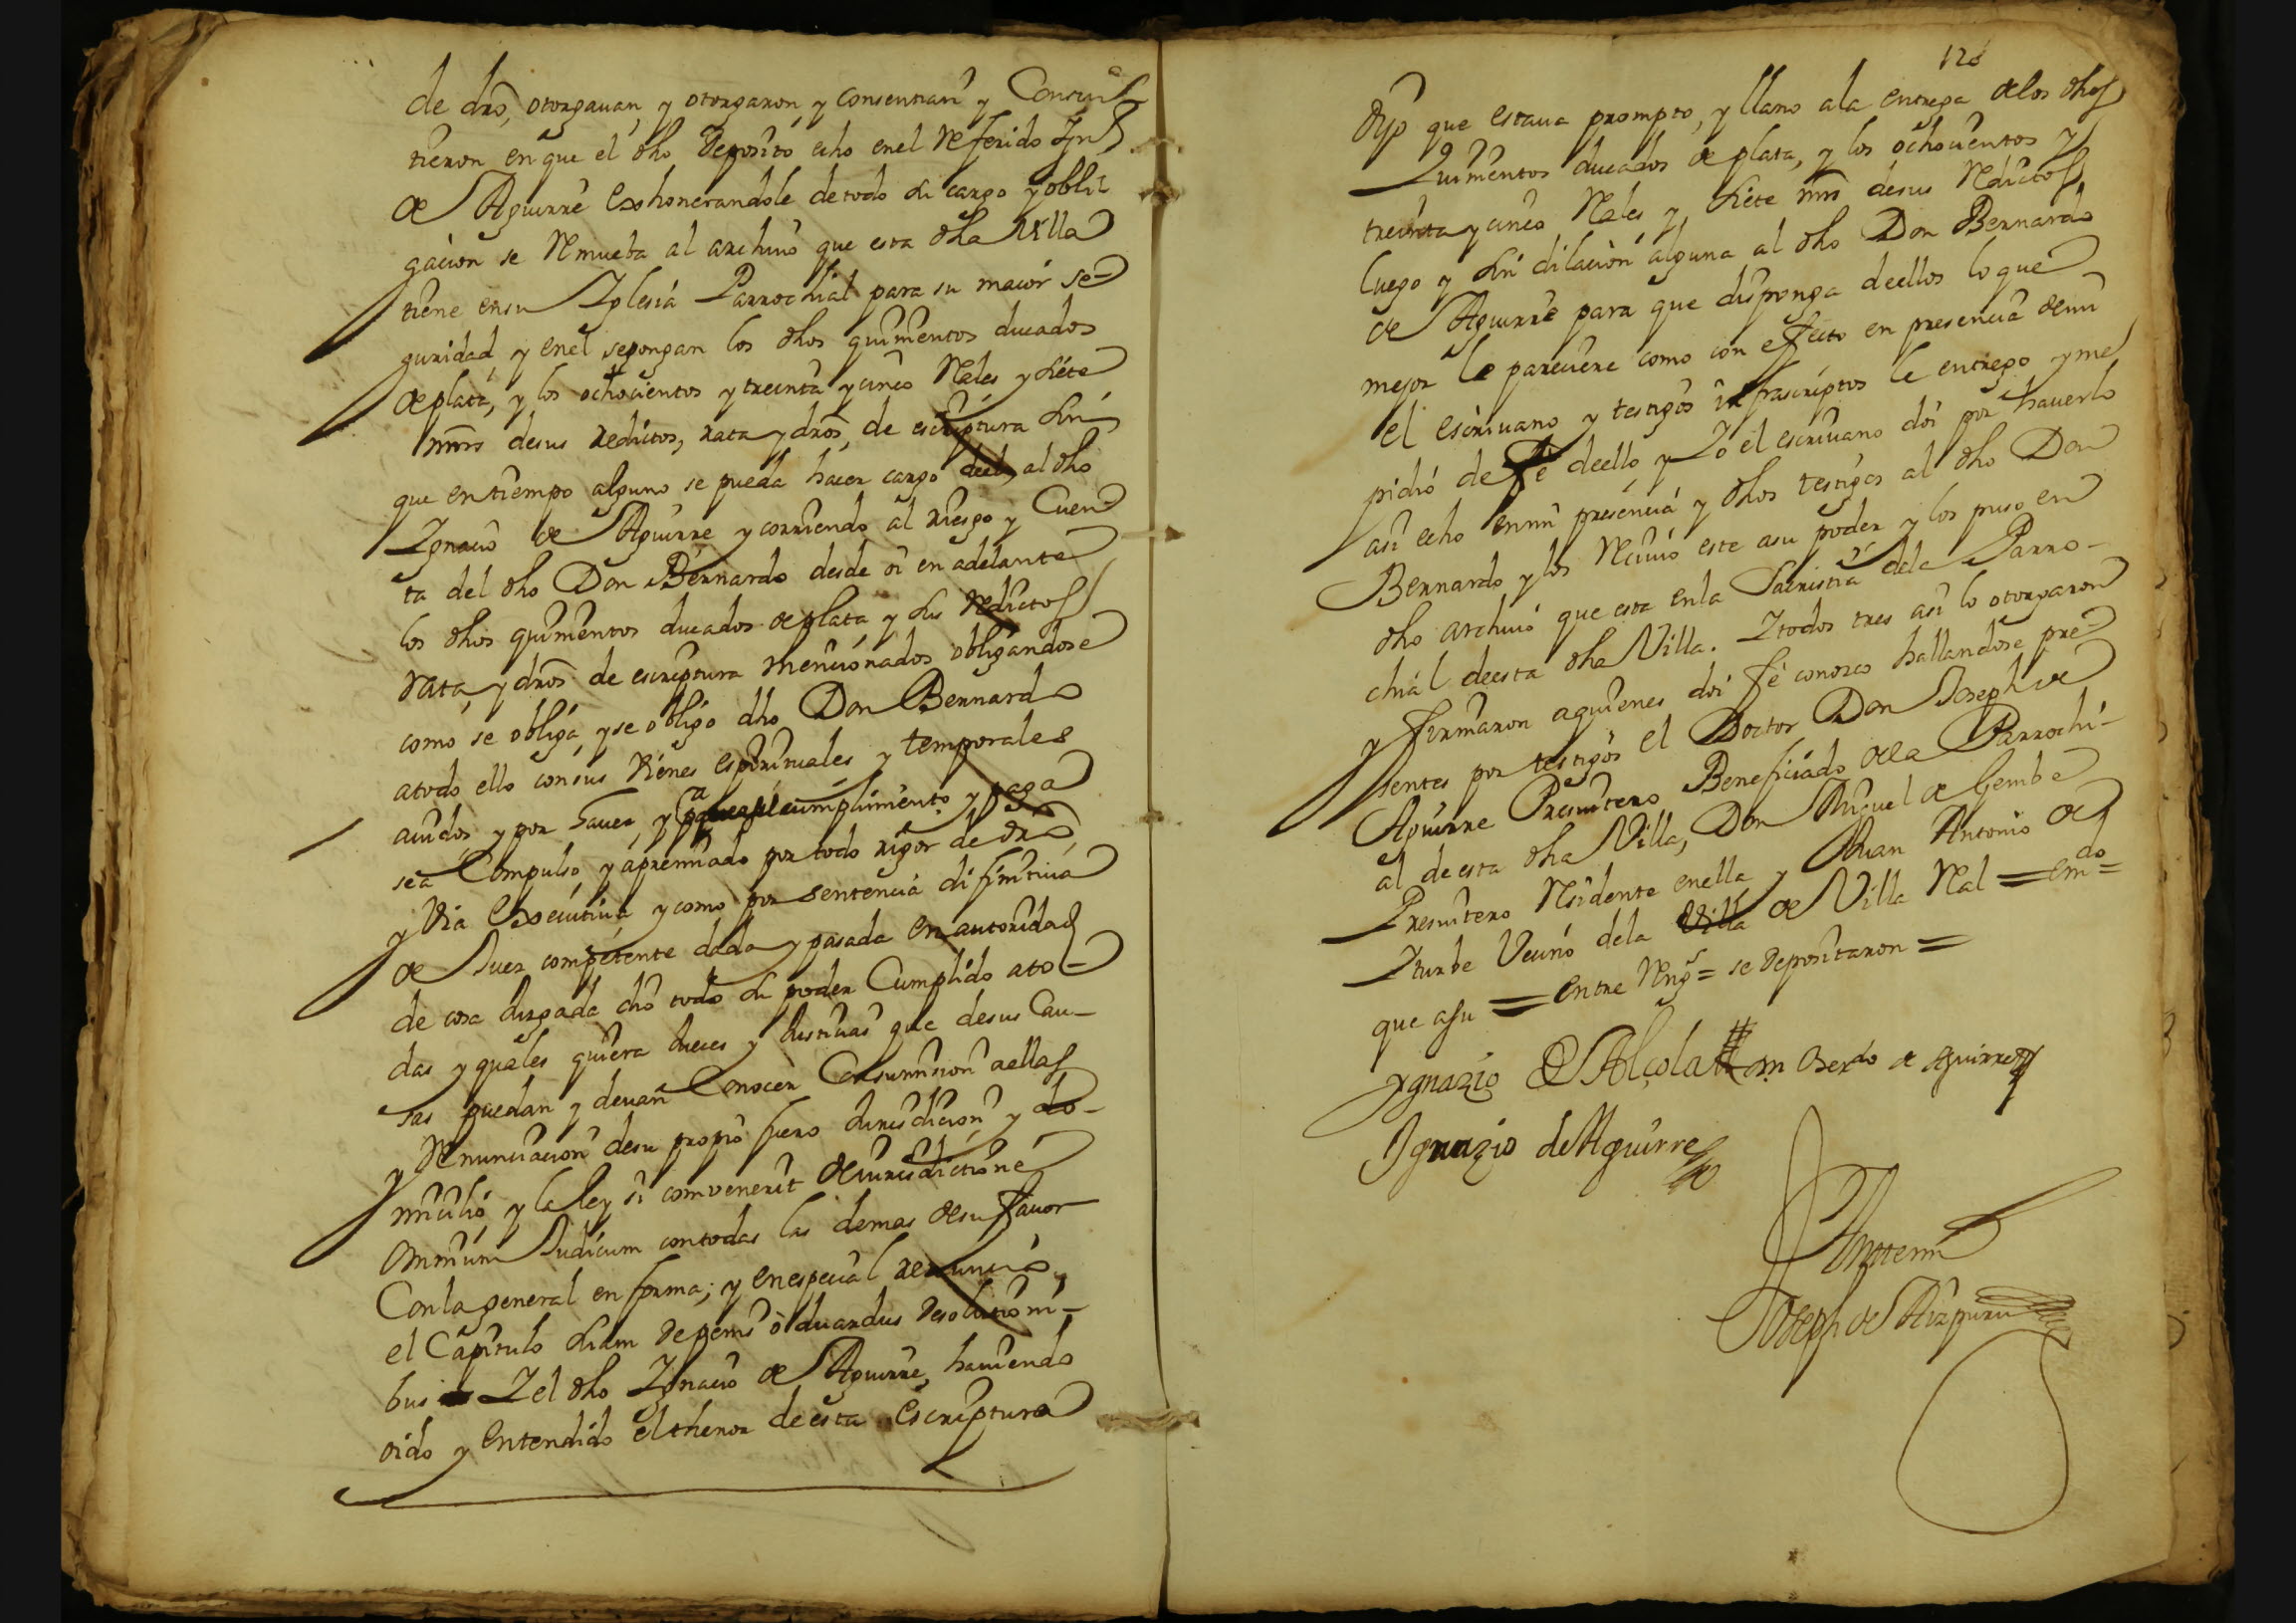 de dro, otorgauan, y otorgaron, y consentian y Consin
tieron en que el dho deposito echo en el Referido Ign
de Aguirre exhonerandole de todo su cargo y obli
gacion se Remueba al archiuo que esta dha Villa
tiene en su Iglesia Parrochial para su maior se-
guridad, y enel se pongan los dhos quinientos ducados
de plata, y los ochocientos y treinta y cinco Rales y siete
mrs de sus reditos, rata y dros, de escriptura sin
que en tiempo alguno se pueda hacer cargo deel al dho
Ignacio de Aguirre y corriendo al riesgo y Cuen
ta del dho Don Bernardo desde oi en adelante
los dhos quinientos ducados de plata y sus Redictos
rata, y dros de escriptura mencionados obligandose
como se obliga, y se obligo dho Don Bernardo
a todo ello con sus vienes espirituales y temporales
auidos, y por hauer, y a cumplimiento y paga
sea Compulso y apremiado por todo rigor de dro,
y Via Executiua y como por sentencia difinitiua
de Juez competente dada y pasada en autoridad
de cosa Jusgada dio todo su poder Cumplido a to-
das y quales quiera Jueces y Justicias que de sus Cau-
sas puedan y deuan Conocer Con sumision a ellas
y Renunciacion de su propio fuero Jurisdicion y do-
micilio, y la ley si convenerit de iurisdictione
omnium Judicum con todas las demas de su fauor
Con la general en forma; y en especial renuncio
el Capitulo suam de penis oduardus de solutioni-
bus Y el dho Ignacio de Aguirre, hauiendo
oido y entendido el thenor de esta escriptura
128
dijo que estaua prompto, y llano a la entrega de los dhos
Quinientos ducados de plata, y los ochocientos y
treinta y cinco Rales y siete mrs de sus Redictos
luego y sin dilacion alguna al dho Don Bernardo
de Aguirre para que disponga de ellos lo que
mejor le pareciere como con efecto en presencia de mi
el escriuano y testigos infrascriptos le entrego y me
pidio de fe de ello, y Yo el escriuano doi por hauerlo
asi echo en mi presencia y dhos testigos al dho Don
Bernardo y los Reciuio este a su poder y los puso en
dho archiuo que esta en la Sacristia de la Parro-
chial de esta dha Villa. Y todos tres asi lo otorgaron
y firmaron a quienes doi fe conozco hallandose pre-
sentes por testigos el Doctor Don Joseph de
Aguirre Presuitero Beneficiado de la Parrochi-
al de esta dha Villa, Don Miguel de Lembe
Presuitero Residente en ella y Juan Antonio de
Yturbe Vecino de la Villa de Villa Real = em do =
que a su = entre Reng s = se depositaron =
Ygnazio de Alçola Dn Berdo de Aguirre
Ignazio de Aguirre
Ante mi
Joseph de Aizpuru